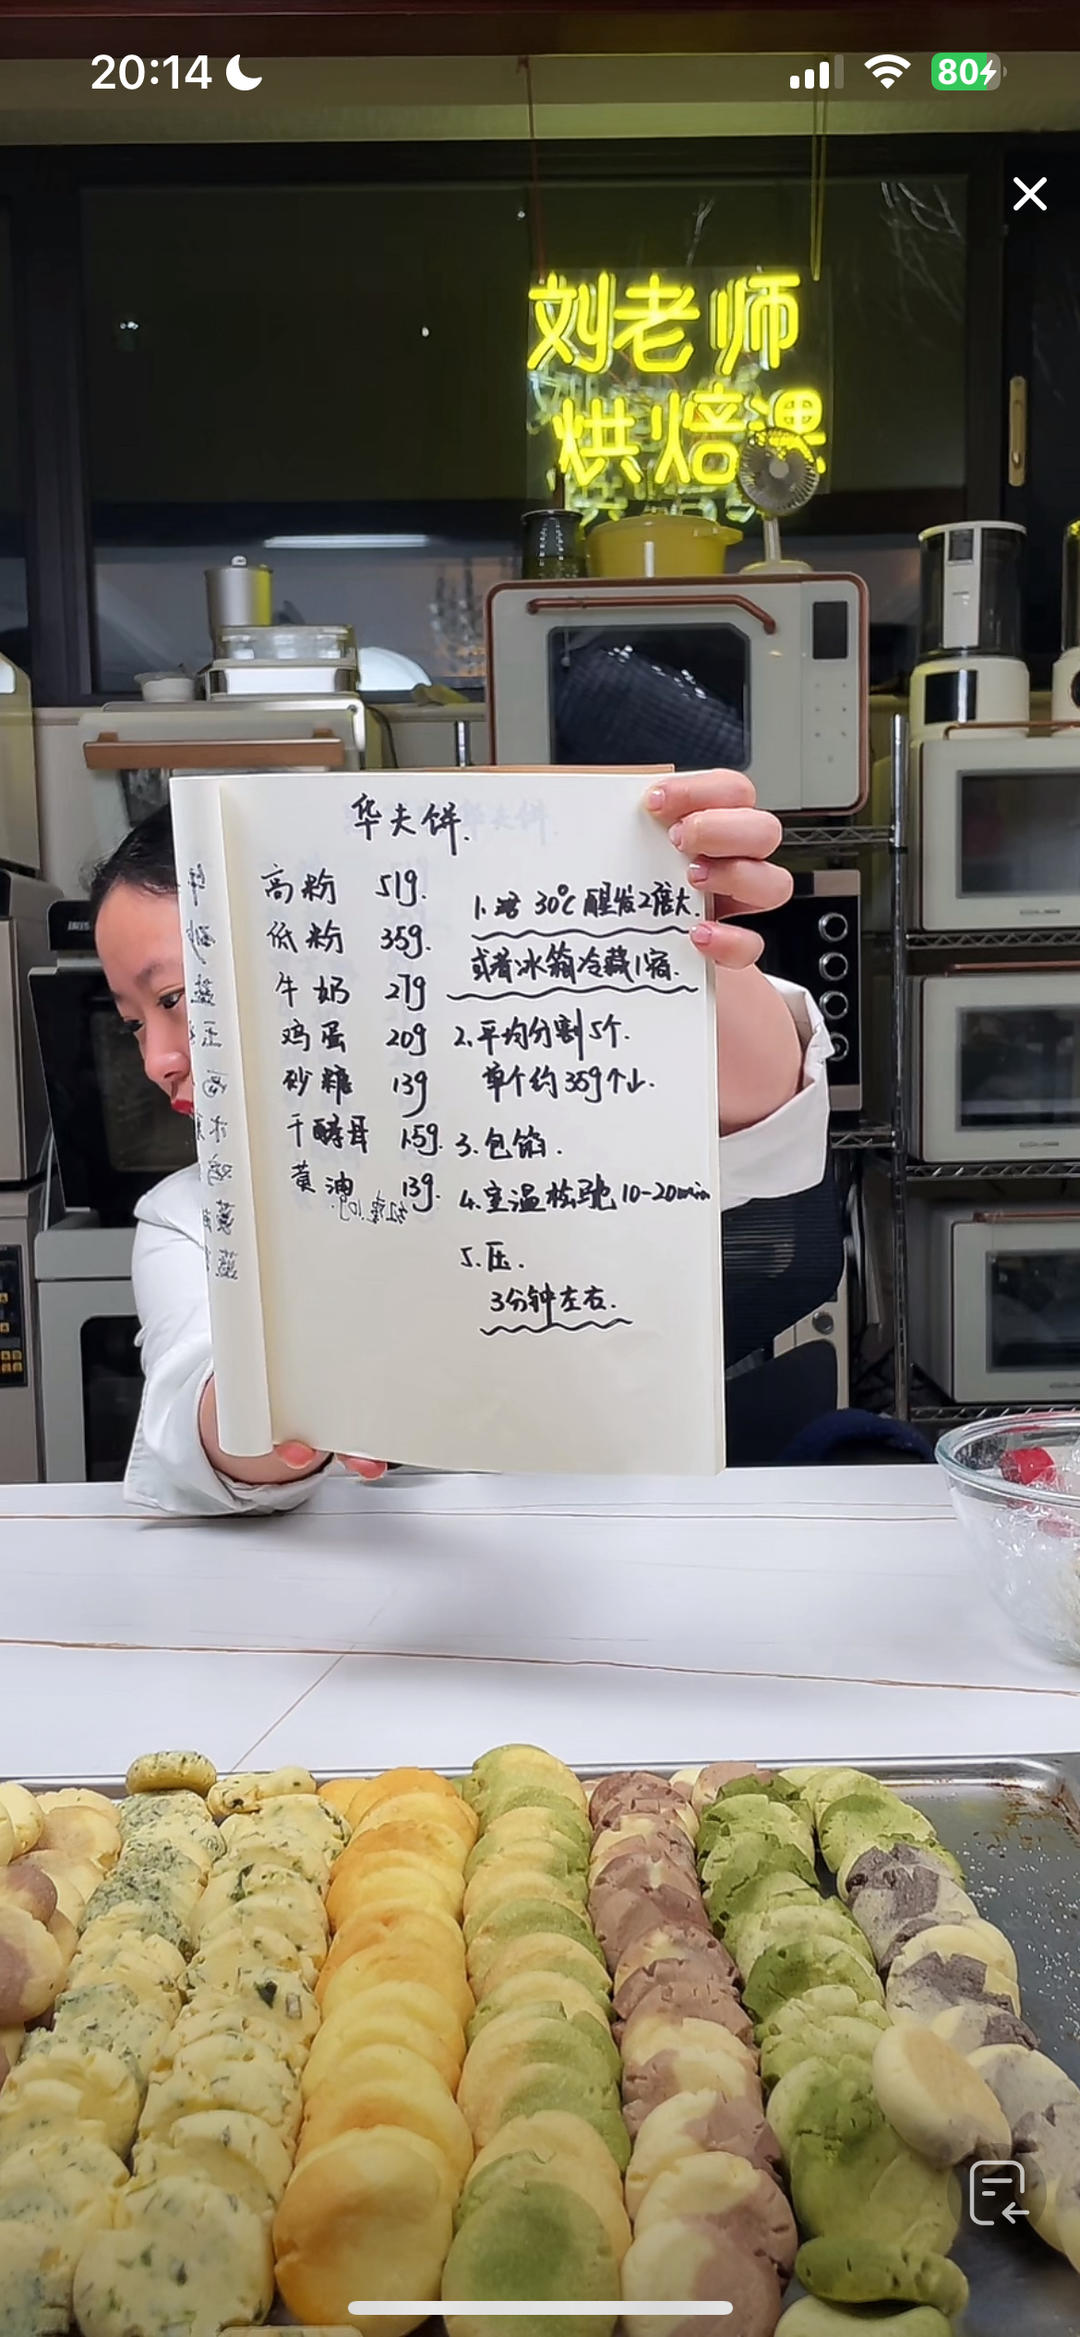 20:14
80
刘老师
烘焙课
华夫饼.
高粉 51g.
低粉 35g.
牛奶 27g
鸡蛋 20g
砂糖 13g
干酵母 1.5g.
黄油 13g.
1. 30℃ 醒发2倍大.
或者冰箱冷藏1宿.
2.平均分割5个.
单个约35g个小.
3.包馅.
4.室温松弛10-20min
5.压.
3分钟左右.